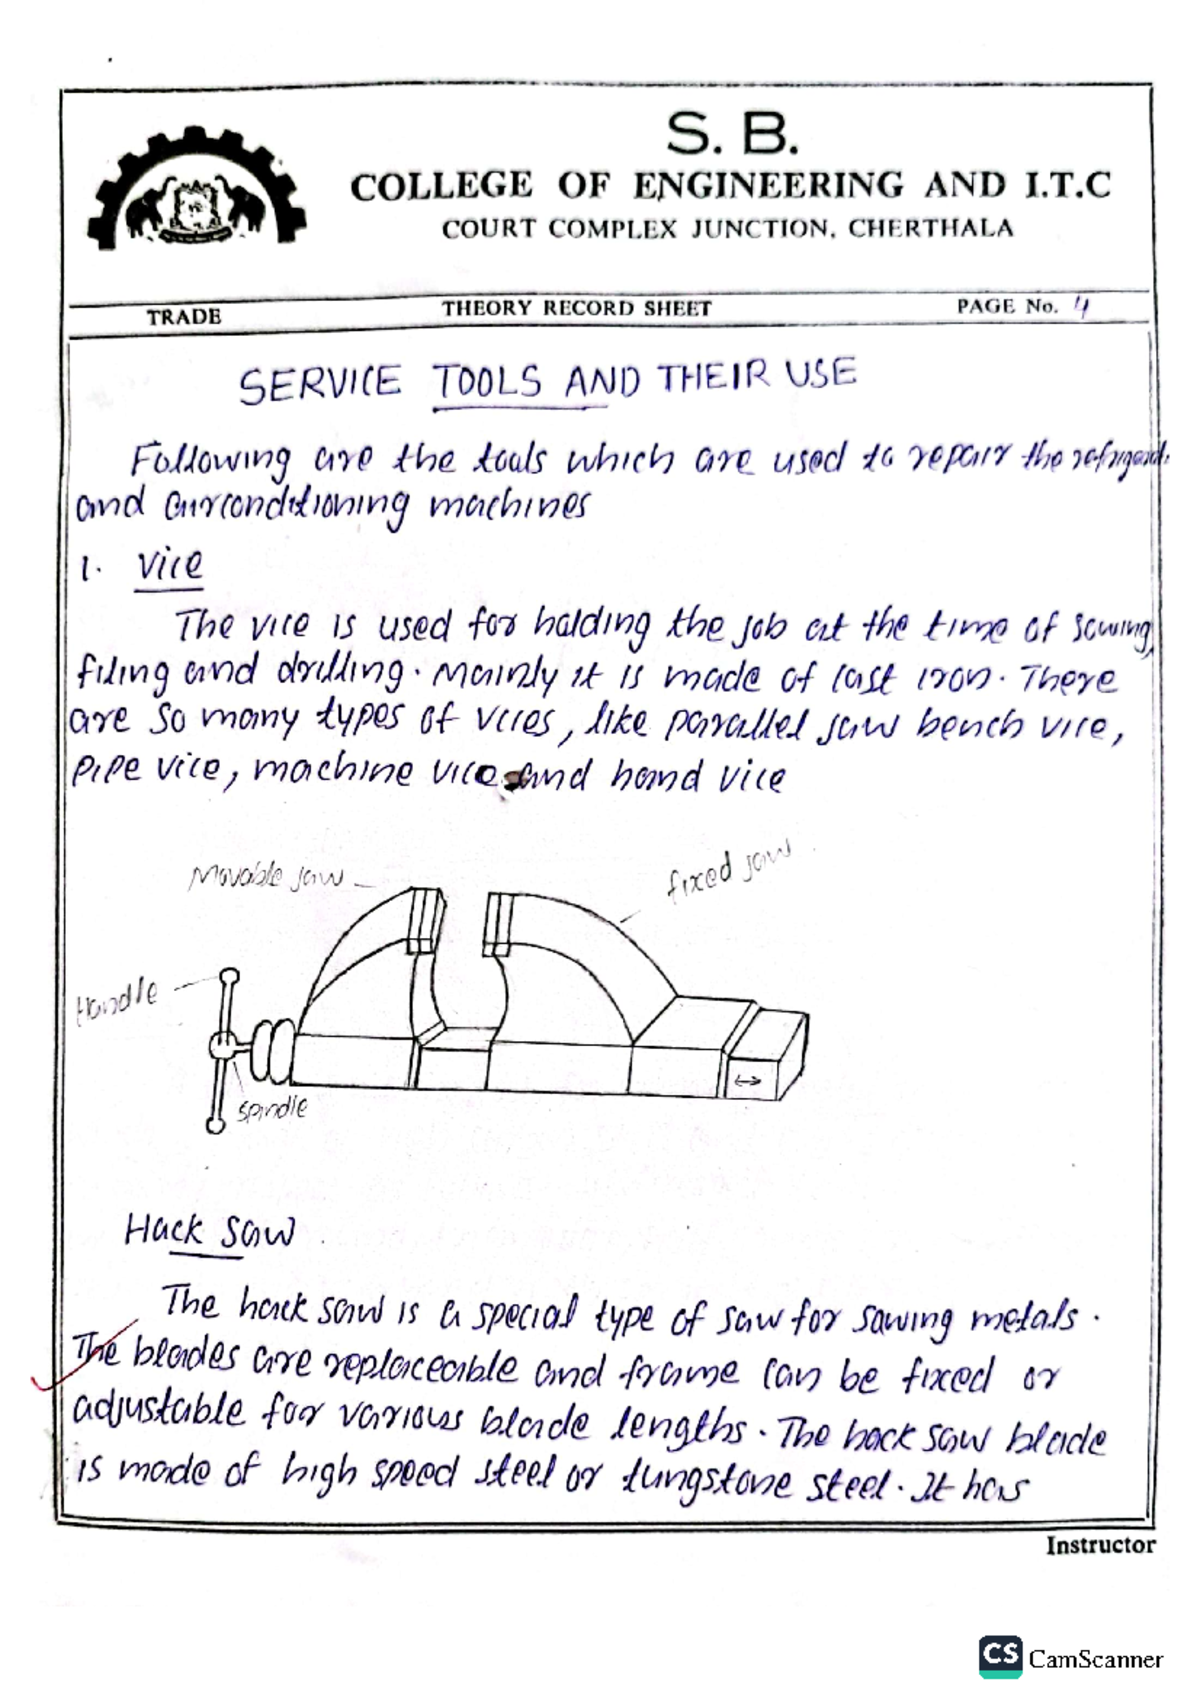 S. B.
COLLEGE OF ENGINEERING AND I.T.C
COURT COMPLEX JUNCTION, CHERTHALA
TRADE THEORY RECORD SHEET PAGE No. 4
SERVICE TOOLS AND THEIR USE
Following are the tools which are used to repair the
and airconditioning machines
1. Vice
The vice is used for holding the job at the time of sawing,
filing and drilling. Mainly it is made of cast iron. There
are so many types of vices, like parallel jaw bench vice,
pipe vice, machine vice and hand vice
Movable jaw
fixed jaw
Handle
spindle
Hack saw
The hack saw is a special type of saw for sawing metals.
The blades are replaceable and frame can be fixed or
adjustable for various blade lengths. The hack saw blade
is made of high speed steel or tungstone steel. It has
Instructor
CS CamScanner